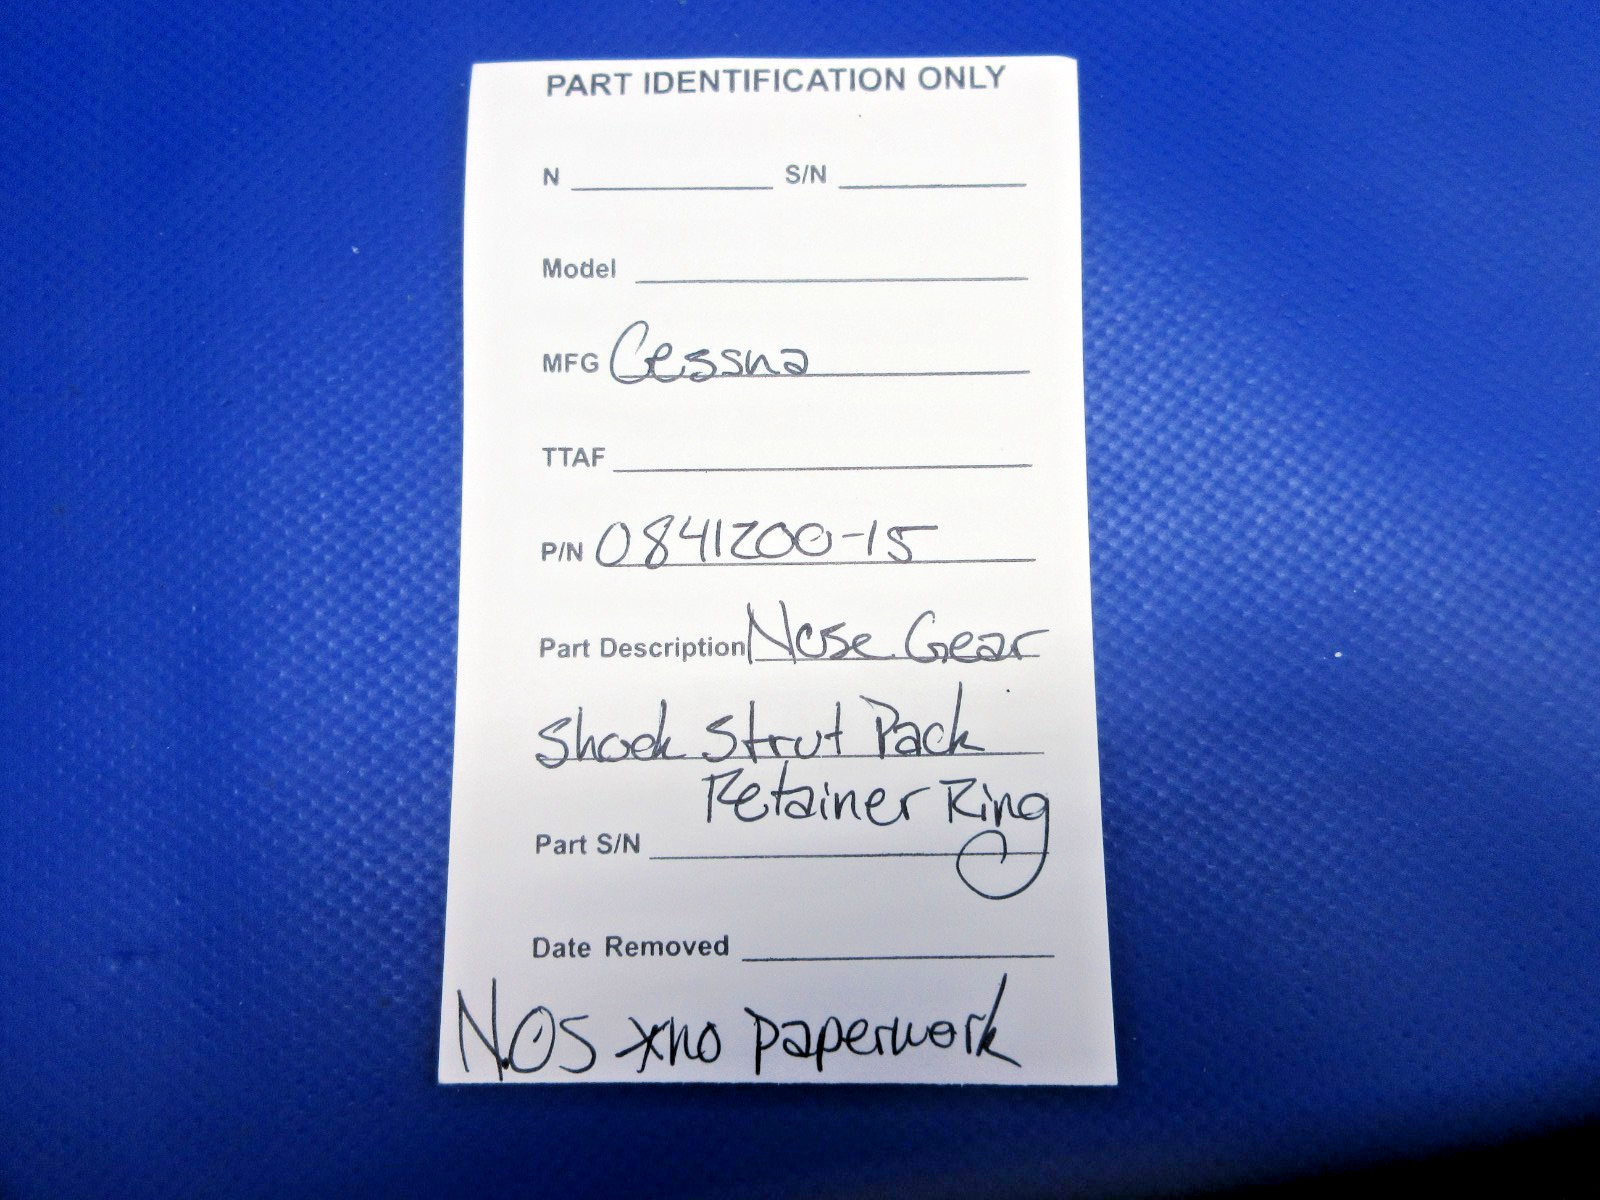 PART IDENTIFICATION ONLY
N S/N
Model
MFG Cessna
TTAF
P/N 0841200-15
Part Description Nose Gear
Shock Strut Pack
Retainer Ring
Part S/N
Date Removed
NOS *no paperwork